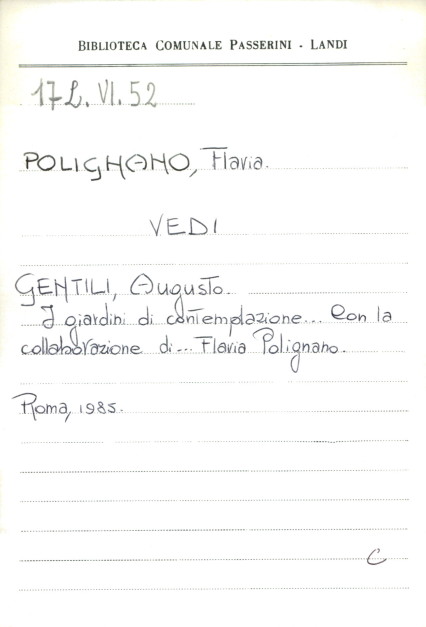 BIBLIOTECA COMUNALE PASSERINI - LANDI
17L.VI.52
POLIGNANO, Flavia.
VEDI
GENTILI, Augusto.
I giardini di contemplazione... Con la
collaborazione di... Flavia Polignano.
Roma, 1985.
C